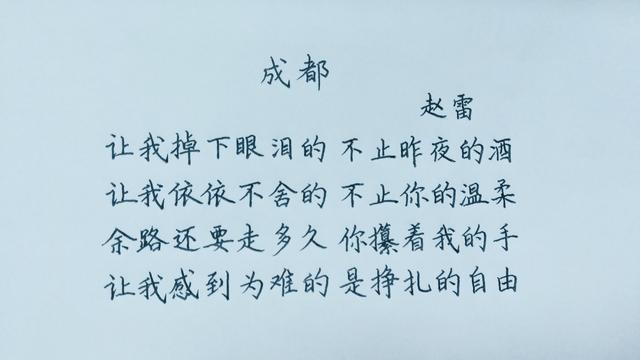 成都
赵雷
让我掉下眼泪的 不止昨夜的酒
让我依依不舍的 不止你的温柔
余路还要走多久 你攥着我的手
让我感到为难的 是挣扎的自由